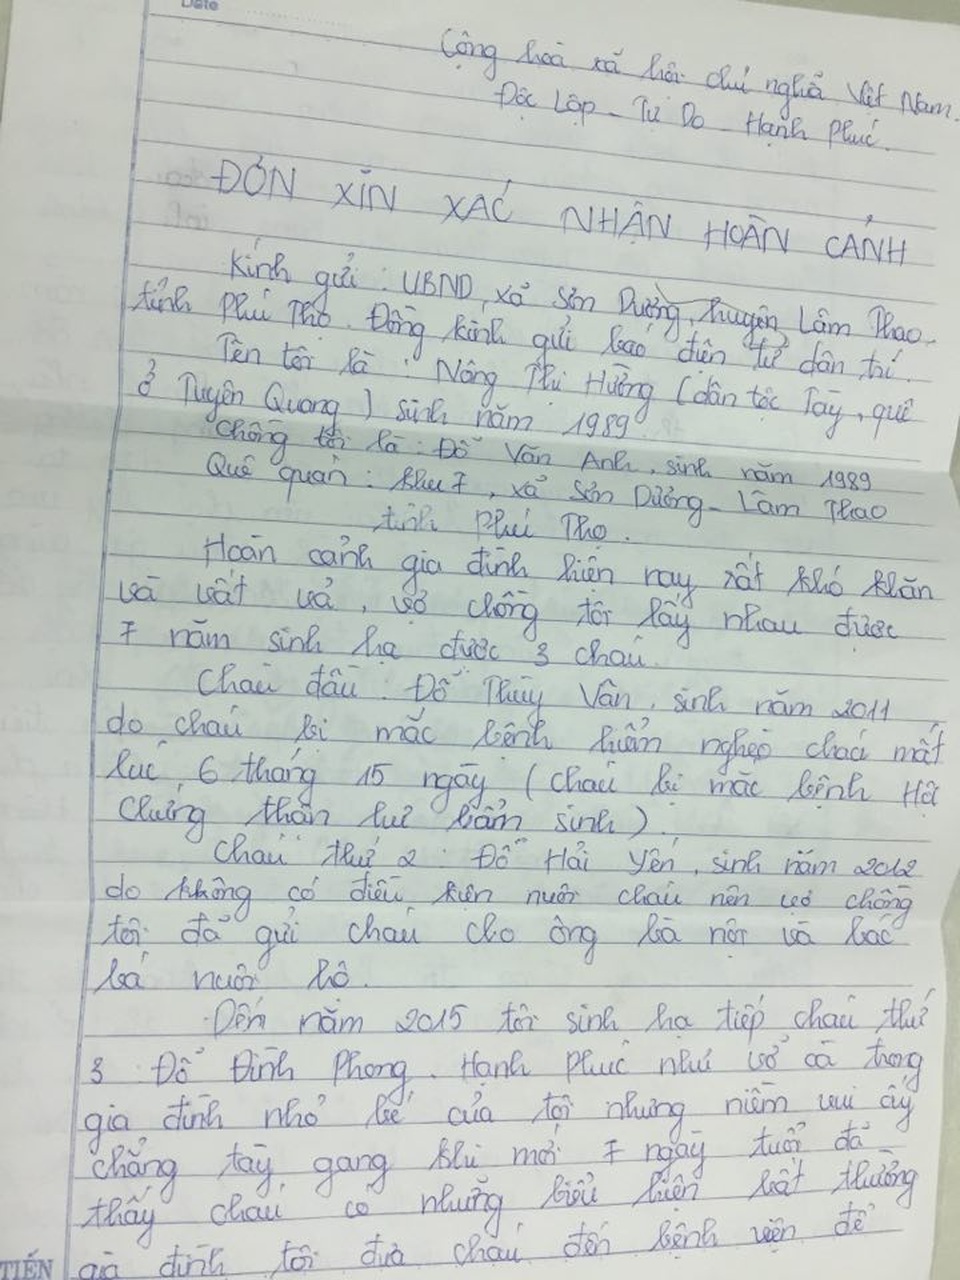 Date
Cộng hoà xã hội chủ nghĩa Việt Nam.
Độc Lập - Tự Do - Hạnh Phúc.
ĐƠN XIN XÁC NHẬN HOÀN CẢNH
Kính gửi: UBND, xã Sơn Dương, huyện Lâm Thao,
tỉnh Phú Thọ. Đồng kính gửi báo điện tử dân trí.
Tên tôi là: Nông Thị Hường (dân tộc Tày, quê
ở Tuyên Quang) sinh năm 1989.
Chồng tôi là: Đỗ Văn Anh, sinh năm 1989
Quê quán: khu 7, xã Sơn Dương - Lâm Thao
tỉnh Phú Thọ.
Hoàn cảnh gia đình hiện nay rất khó khăn
và vất vả, vợ chồng tôi lấy nhau được
7 năm sinh hạ được 3 cháu.
Cháu đầu: Đỗ Thùy Vân, sinh năm 2011
do cháu bị mắc bệnh hiểm nghèo cháu mất
lúc 6 tháng 15 ngày (cháu bị mắc bệnh Hội
Chứng thận hư bẩm sinh).
Cháu thứ 2: Đỗ Hải Yến, sinh năm 2012
do không có điều kiện nuôi cháu nên vợ chồng
tôi đã gửi cháu cho ông bà nội và bác
bá nuôi hộ.
Đến năm 2015 tôi sinh hạ tiếp cháu thứ
3: Đỗ Đình Phong. Hạnh phúc như vỡ oà trong
gia đình nhỏ bé của tôi nhưng niềm vui ấy
chẳng tày gang khi mới 7 ngày tuổi đã
thấy cháu có những biểu hiện bất thường
gia đình tôi đưa cháu đến bệnh viện để
TIẾN